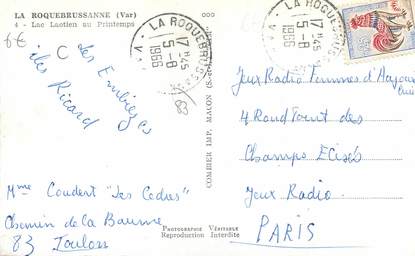 LA ROQUEBRUSSANNE (Var)
4 - Lac Laotien au Printemps
6€
C
Les Embiez
îles Ricard
83
Mme Coudert "Les Cèdres"
Chemin de la Baume
83 Toulon
PHOTOGRAPHIE VÉRITABLE
Reproduction Interdite
COMBIER IMP. MACON
LA ROQUEBRUSSANNE
17H45
5-8
1966
VAR
17H45
5-8
1966
Jeux Radio Femmes d'Aujour
4 Rond Point des
Champs Elisés
Jeux Radio
PARIS